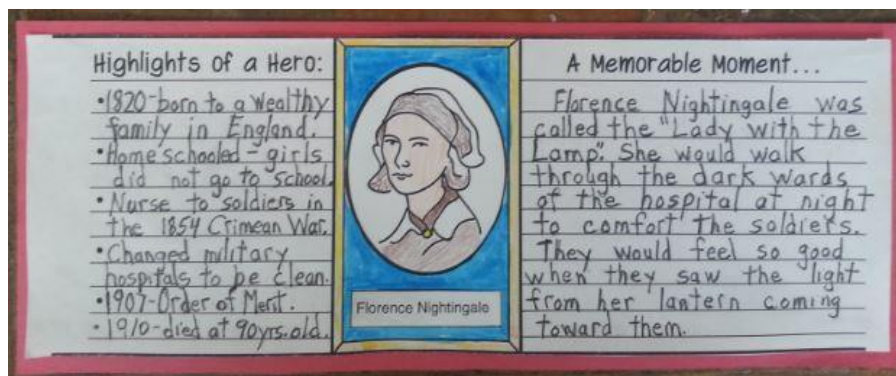 Highlights of a Hero:
•1820-born to a wealthy
family in England.
•Home schooled - girls
did not go to school.
•Nurse to soldiers in
the 1854 Crimean War.
•Changed military
hospitals to be clean.
•1907-Order of Merit.
•1910-died at 90yrs.old.
Florence Nightingale
A Memorable Moment...
Florence Nightingale was
called the "Lady with the
Lamp". She would walk
through the dark wards
of the hospital at night
to comfort the soldiers.
They would feel so good
when they saw the light
from her lantern coming
toward them.